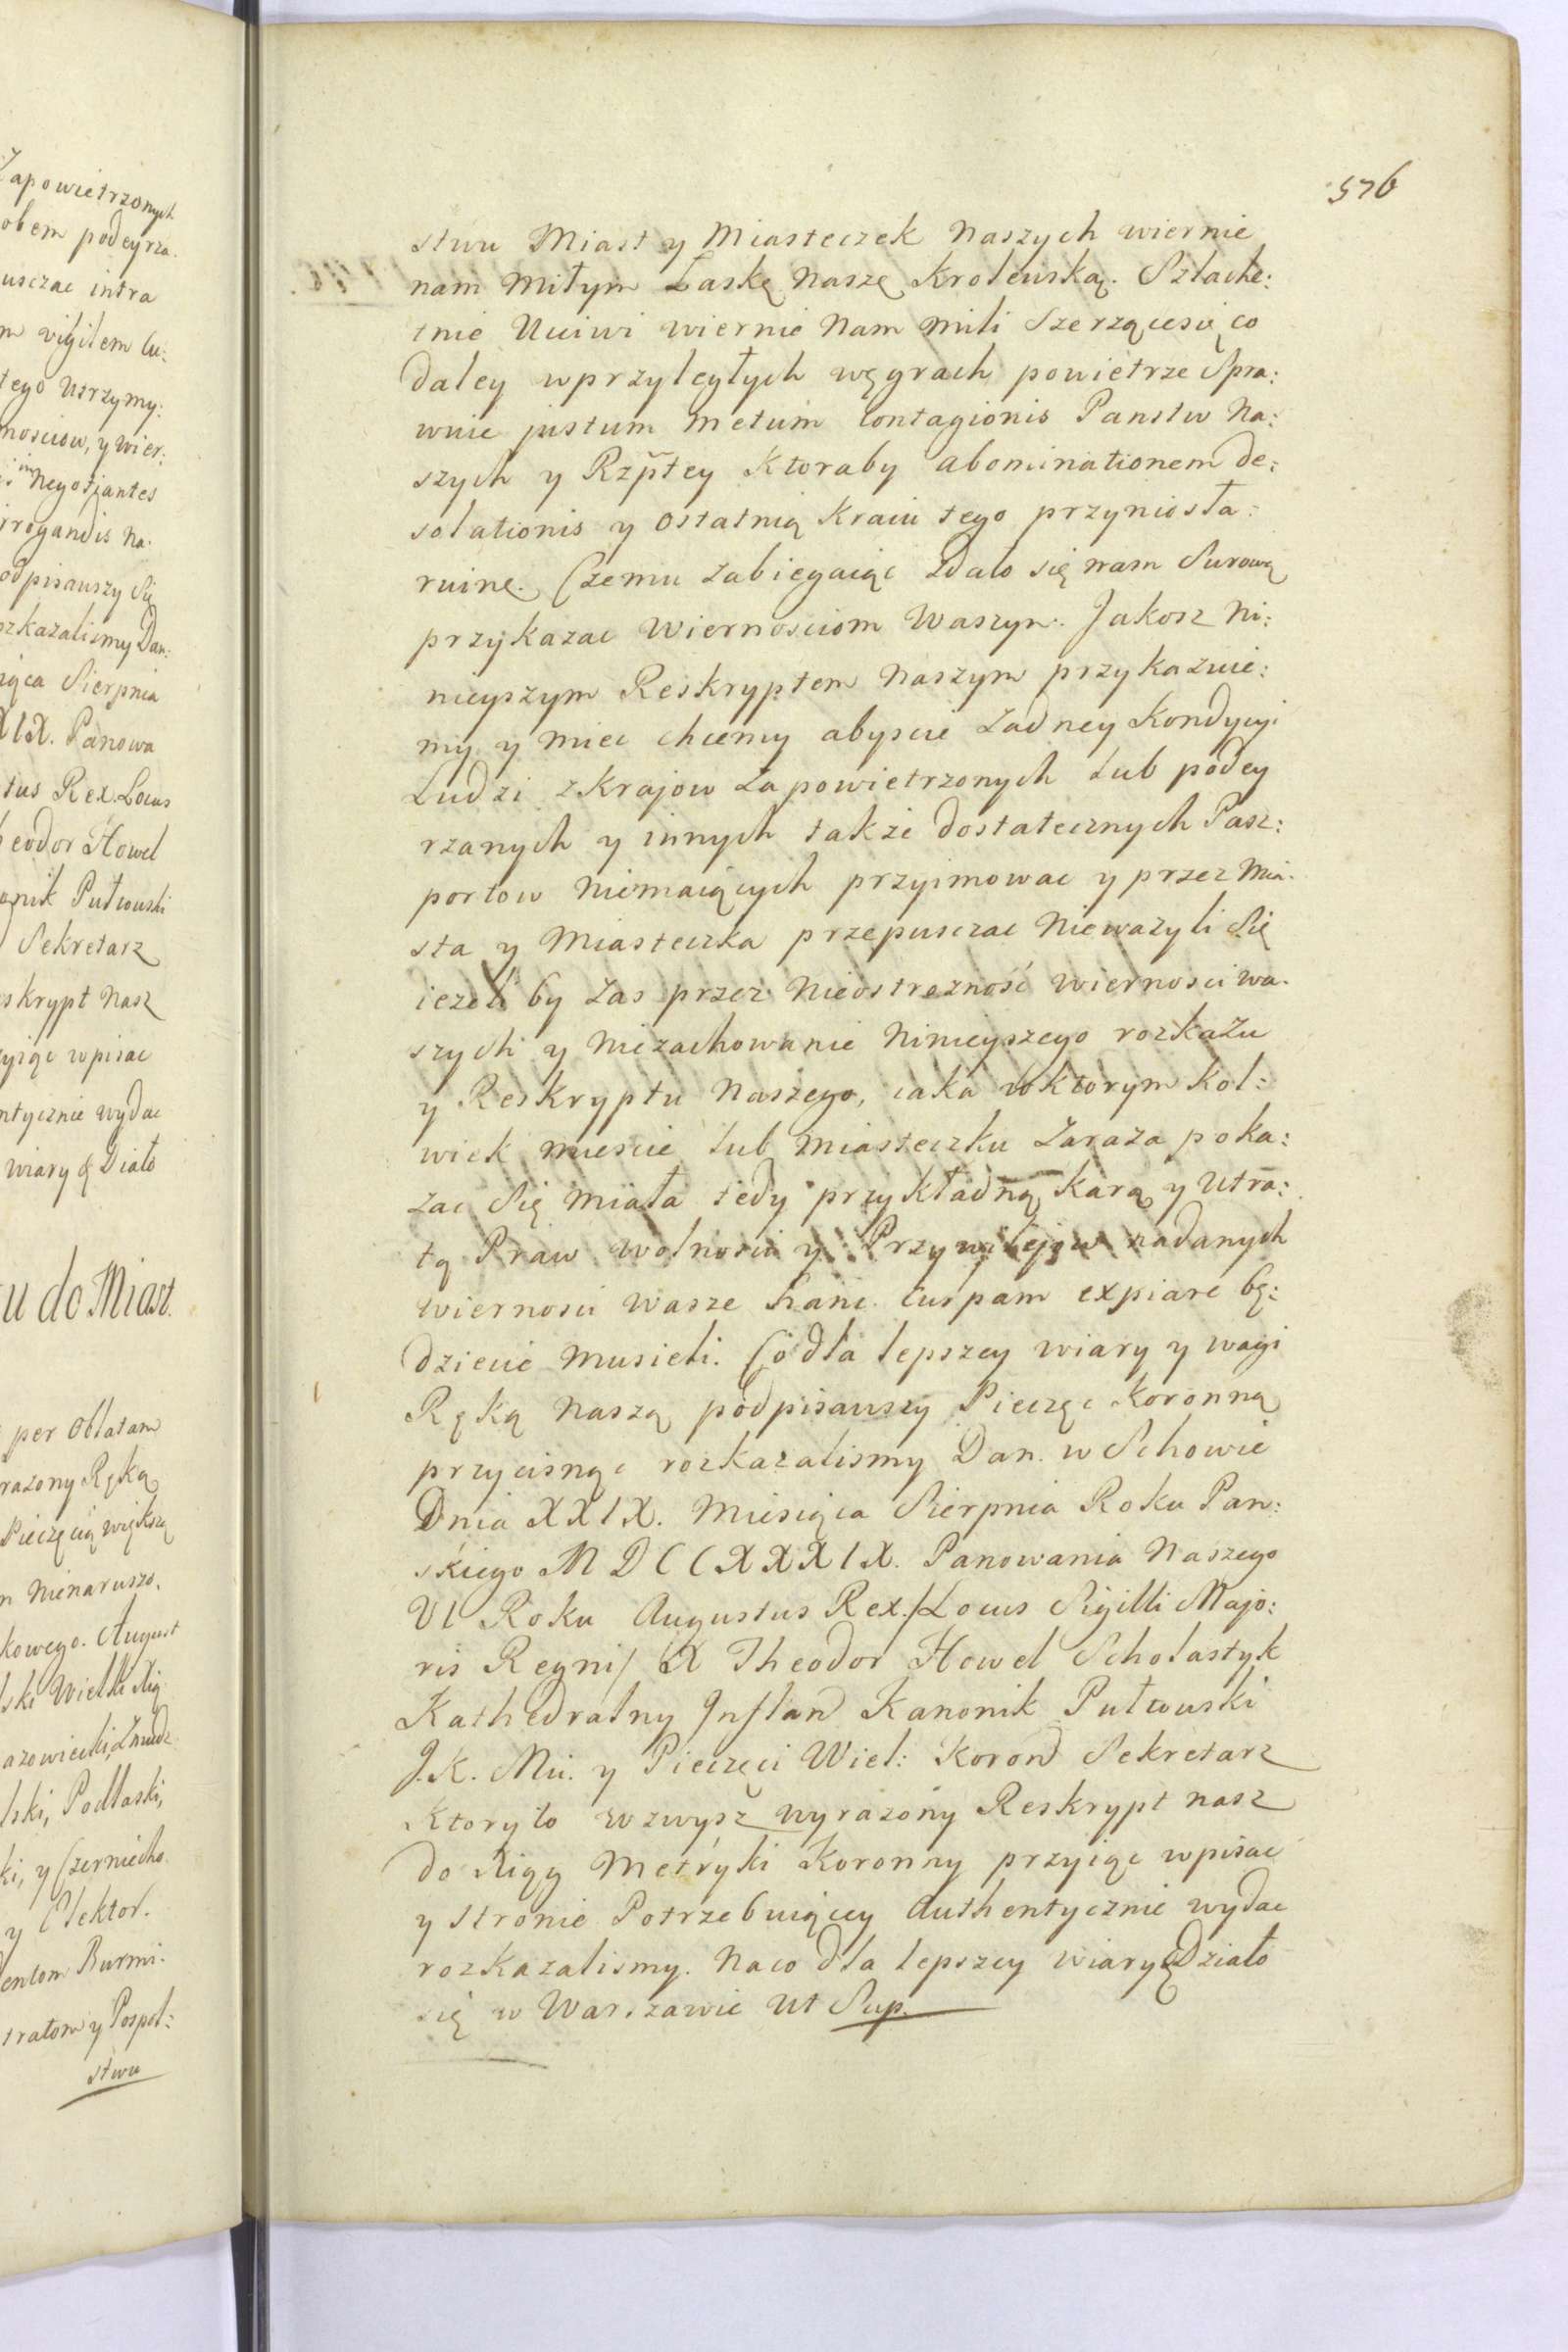 Zapowietrzonych
obem podeyrza.
usczac intra
m vigilem cu:
tego Utrzymy:
nosciow, y wier:
im Negotjantes
irrogandis na.
odpisauszy Się
ozkazalismy Dan:
iąca Sierpnia
XIX. Panowa
tus Rex. Locus
heodor Howel
onik Putwuski
Sekretarz
eskrypt Nasz
yiąc wpisac
ntycznie wydac
wiary & Działo
u do Miast.
per Oblatam
razony Ręką
Pieczęcią większą
m Nienaruszo.
kowego. August
lski Wielki Xią
azowiecki, Zmudz
lski, Podlaski,
ki, y Czerniecho
y Elektor.
dentom Burmi:
stratom y Pospol:
stwu
576
stwu Miast y Miasteczek Naszych wiernie
nam Miłym Łaskę Naszę Krolewską. Szlache:
tnie Uciwi wiernie Nam mili Szerząceśię co
daley wprzyległych węgrach powietrze Spra:
wuie justum metum Contagionis Panstw Na:
szych y Rzptey Ktoraby abominationem de:
solationis y ostatnią Kraiu tego przyniosła:
ruinę. Czemu Zabiegaiąc Zdało się nam Surową
przykazac Wiernosciom Waszym. Jakosz Ni:
nieyszym Reskryptem Naszym przykazuie:
my y miec chcemy abyscie Zadney Kondycyi
Ludzi zKrajow Zapowietrzonych lub podey
rzanych y innych takze dostatecznych Pasz:
portow Niemaiących przyimowac y przez Mia:
sta y Miasteczka przepusczac Niewazyli Się
iezeli by Zas przez Nieostrezność wiernosci wa:
szych y Niezachowanie Ninieyszego rozkazu
y Reskryptu Naszego, iaka wktorym kol:
wiek miescie lub Miasteczku Zaraza poka:
zac Się miała tedy przykładną karą y Utra:
tą Praw wolnosci y Przywilejow nadanych
wiernosci wasze hanc Culpam expiare bę:
dziecie musieli. Co dla lepszey wiary y wagi
Ręką Naszą podpisauszy Pieczęc Koronną
przycisnąc rozkazalismy Dan. w Schowie
Dnia XXIX. Miesiąca Sierpnia Roku Pan:
skiego MDCCXXXIX. Panowania Naszego
VI Roku Augustus Rex. /Locus Sigilli Majo:
ris Regni/ X Theodor Howel Scholastyk
Kathedralny Inflan Kanonik Putwuski
J.K. Mci. y Pieczęci Wiel: Koron Sekretarz
Ktory to wzwysz wyrazony Reskrypt nasz
do Xiąg Metryki Koronny przyiąc wpisac
y Stronie Potrzebuiącey Authentycznie wydac
rozkazalismy. Naco dla lepszey wiary & Działo
się w Warszawie Ut Sup.